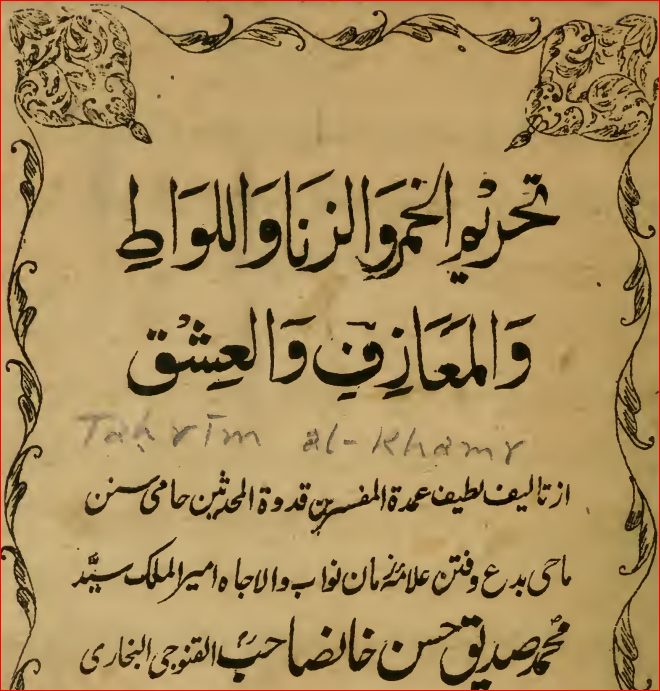 تحريم الخمر والزنا واللواط
والمعازف والعشق
Taḥrīm al-Khamr
از تالیف لطیف عمدة المفسرین قدوة المحدثین حامی سنن
ماحی بدع و فتن علامۂ زمان نواب والا جاہ امیر الملک سید
محمد صدیق حسن خانصاحب القنوجی البخاری